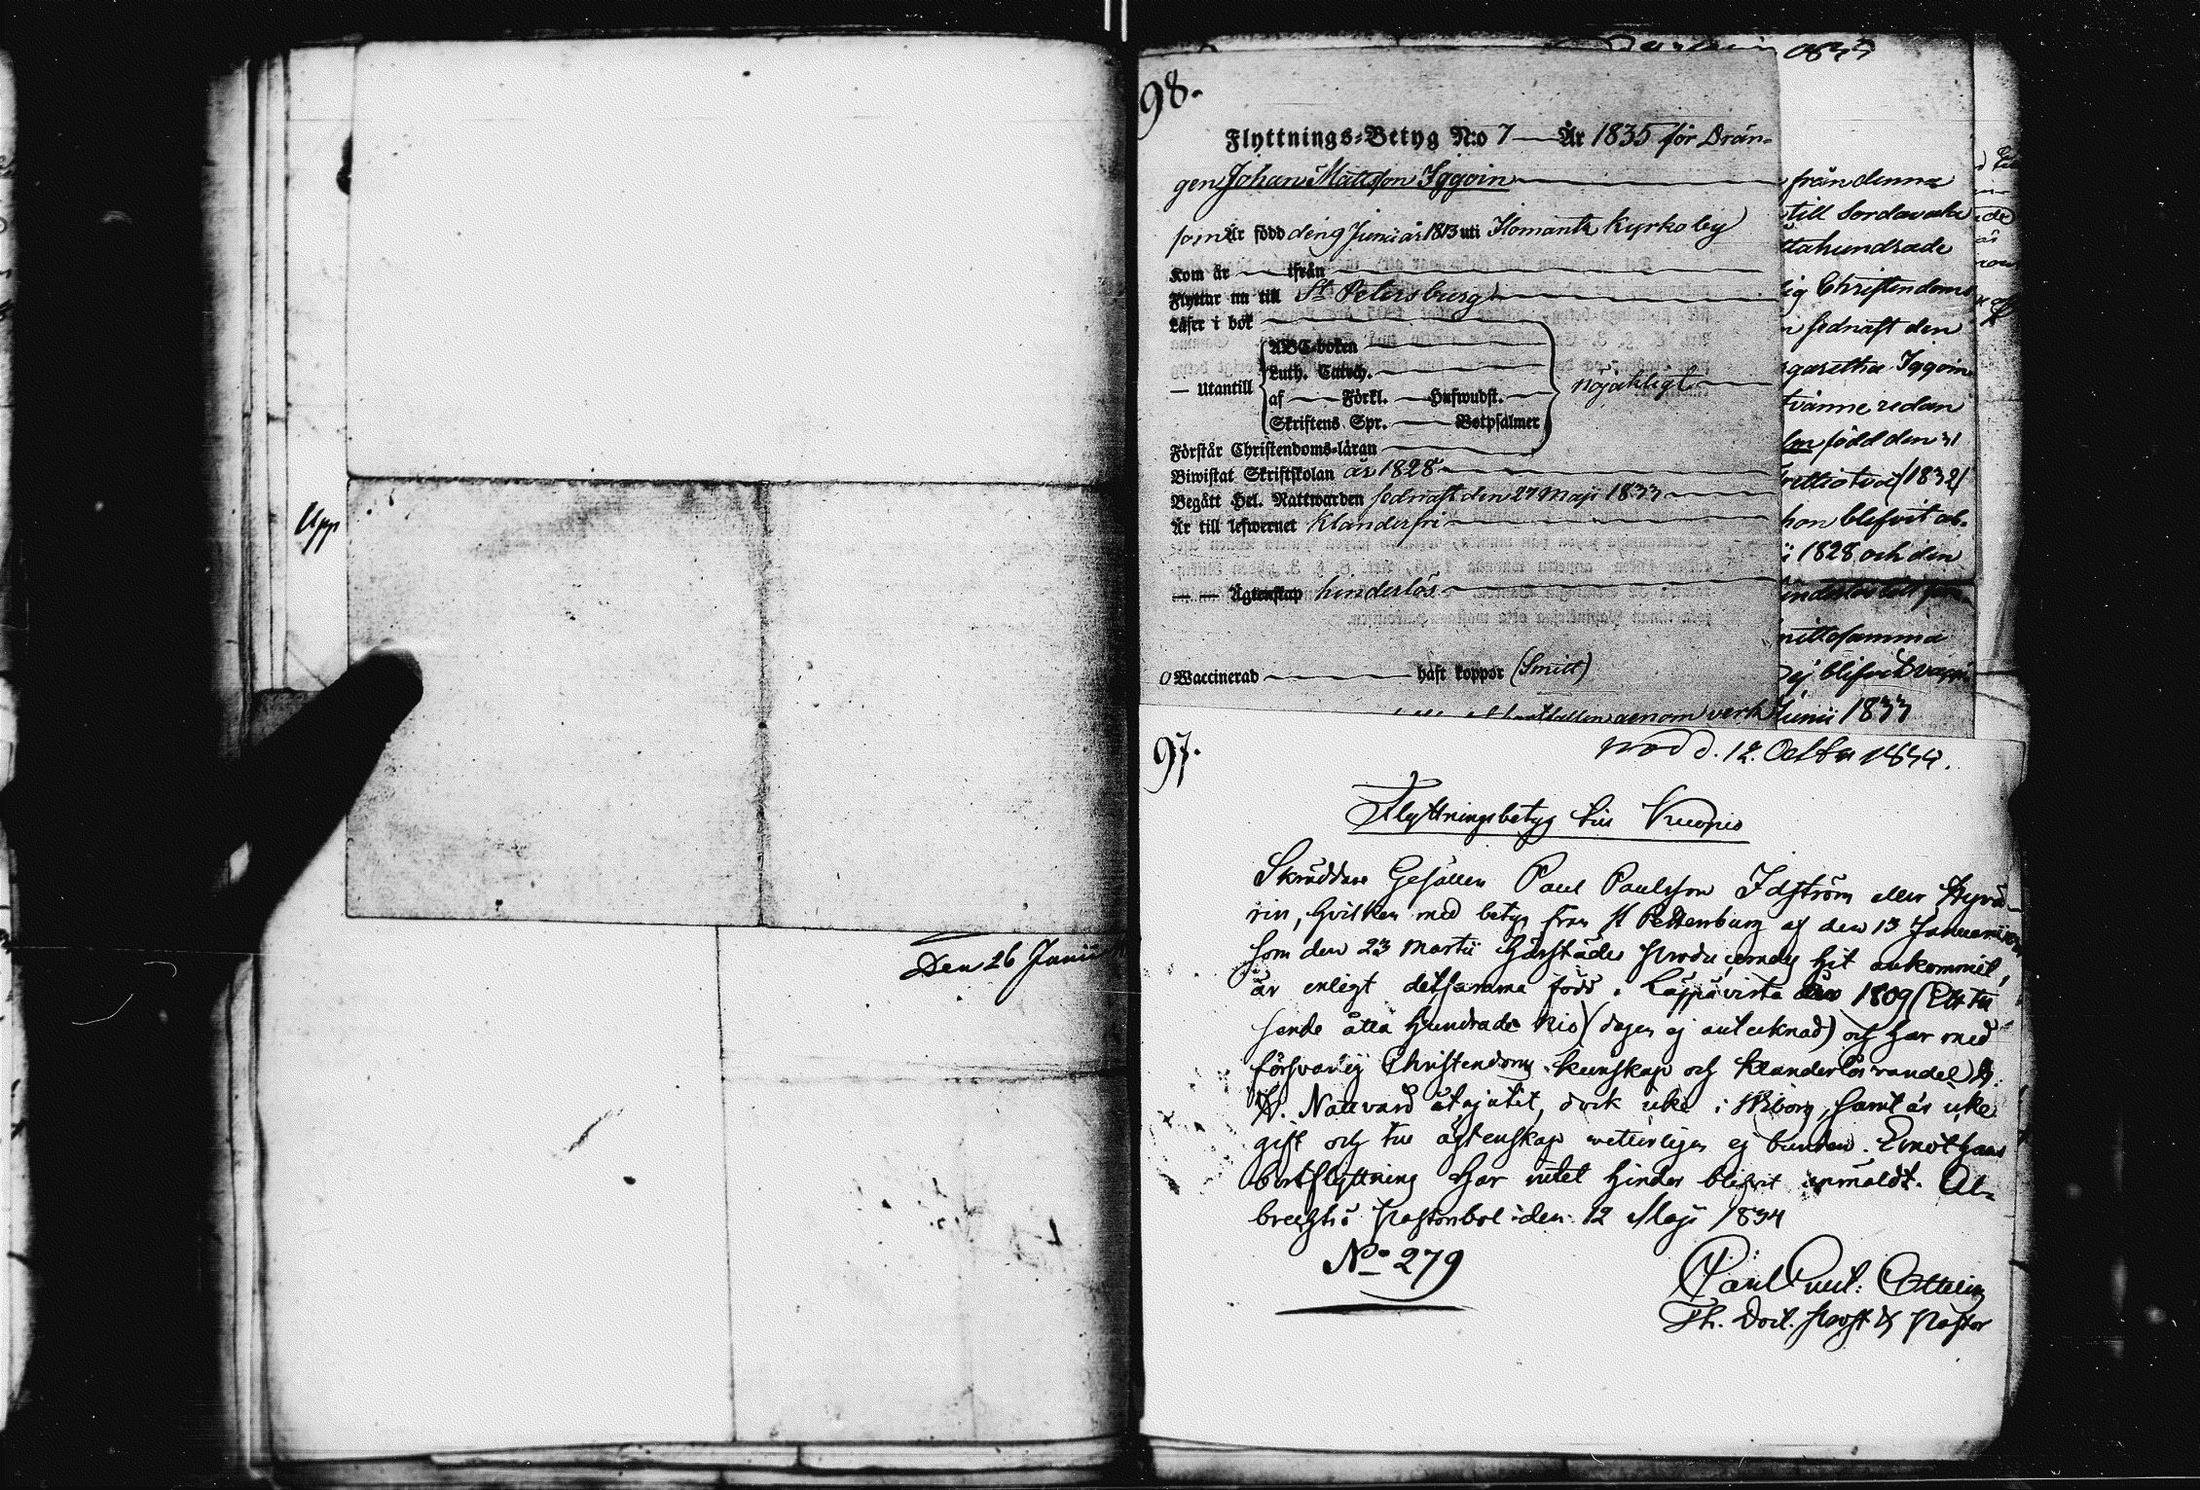 Upp
Den 26 Junii
98.
Flyttnings-Betyg N:o 7 År 1835 för Drän-
gen Johan Mattsson Iggoin
som Är född den 9 Junii år 1813 uti Ilomants Kyrkoby
Kom år ifrån
Flyttar nu till St Petersburg
Läser i bok
ABC-boken
Luth. Catech.
— Utantill
af Förkl. Hufwudst.
nöjaktligt
Skriftens Spr. Botpsalmer
Förstår Christendoms-läran
Biwistat Skriftskolan år 1828
Begått Hel. Nattwarden sednast den 27 Maji 1833
Är till lefwernet Klanderfri
— — Ägtenskap hinderlös
Waccinerad haft koppor (Smitt)
genom verk
från denna
till Sordavala
ttahundrade
ig Christendoms
sednast den
garetha Iggoin
tvänne redan
född den 31
trettiotvå (1832)
hon blifvit ab-
1828 och den
samma
ej blifvit
Junii 1833
97.
prod d. 12. Octbr 1834.
Flyttningsbetyg till Kuopio
Skräddare Gesällen Paul Paulsson Idström eller Hyvä-
rin, hvilken med betyg från St Petersburg af den 13 Januarii
som den 23 Martii härstädes producerades hit ankommit,
är enligt detsamma född i Läppävirta år 1809 (Ett tu
sende åtta hundrade nio) (dagen ej antecknad) och har med
försvarlig Christendoms kunskap och klanderlös vandel
H. Nattvard åtnjutit, dock icke i Wiborg, samt är icke
gift och till ägtenskap vetterligen ej bunden. Emot hans
bortflyttning har intet hinder blifvit anmäldt. Al-
brechts Pastorsbol den 12 Maji 1834
No 279
Paul Ottelin
Th. Doct. Prost & Pastor